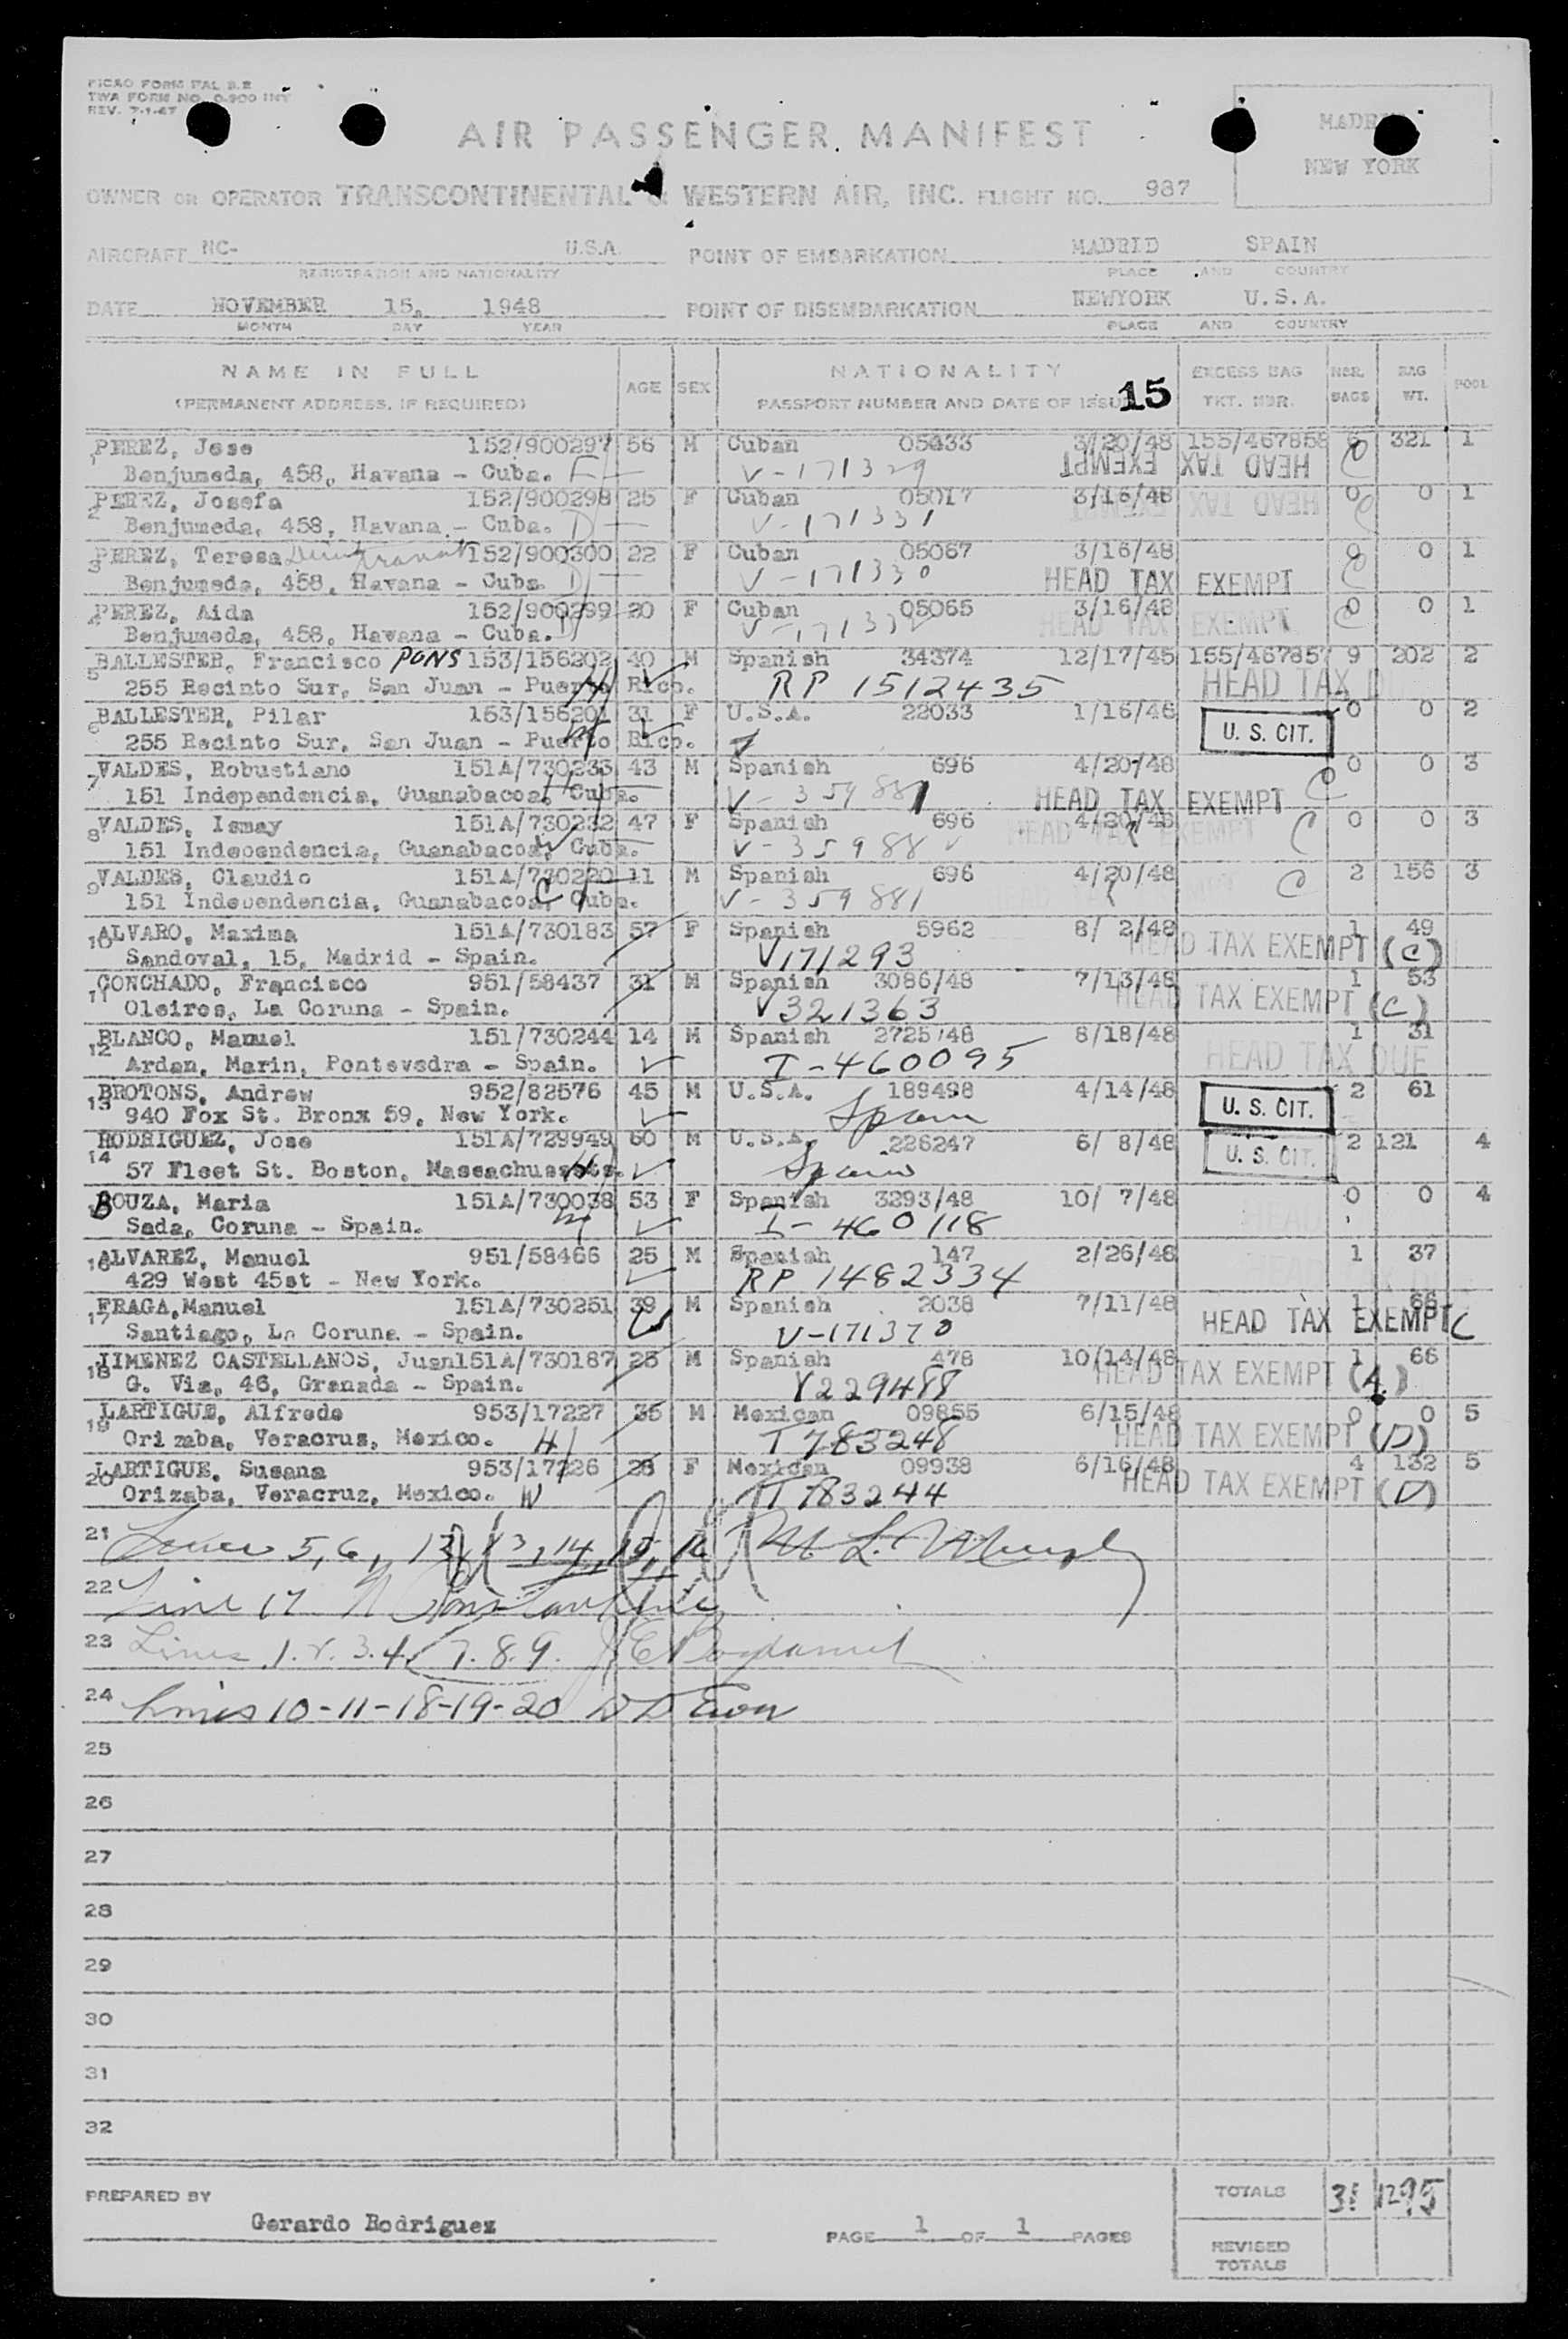 PICAO FORM FAL 3.2
TWA FORM NO. 0-900 INT
REV. 7-1-47
AIR PASSENGER MANIFEST
MADRID
NEW YORK
OWNER OR OPERATOR TRANSCONTINENTAL & WESTERN AIR, INC. FLIGHT NO. 987
AIRCRAFT NC- U.S.A. POINT OF EMBARKATION MADRID SPAIN
REGISTRATION AND NATIONALITY PLACE AND COUNTRY
DATE NOVEMBER 15, 1948 POINT OF DISEMBARKATION NEWYORK U.S.A.
MONTH DAY YEAR PLACE AND COUNTRY
NAME IN FULL AGE SEX NATIONALITY EXCESS BAG NBR. BAG POOL
(PERMANENT ADDRESS, IF REQUIRED) PASSPORT NUMBER AND DATE OF ISSUE 15 TKT. NBR. BAGS WT.
1 PEREZ, Jose 152/900297 56 M Cuban 05033 3/20/48 155/467858 6 321 1
Benjumeda, 458, Havana - Cuba. V-171329 HEAD TAX EXEMPT C
2 PEREZ, Josefa 152/900298 25 F Cuban 05017 3/16/48 HEAD TAX EXEMPT 0 0 1
Benjumeda, 458, Havana - Cuba. D V-171331 C
3 PEREZ, Teresa 152/900300 22 F Cuban 05067 3/16/48 0 0 1
Benjumeda, 458, Havana - Cuba. D V-171330 HEAD TAX EXEMPT C
4 PEREZ, Aida 152/900299 20 F Cuban 05065 3/16/48 0 0 1
Benjumeda, 458, Havana - Cuba. V-171332 HEAD TAX EXEMPT C
5 BALLESTER, Francisco PONS 153/156202 40 M Spanish 34374 12/17/45 155/467857 9 202 2
255 Recinto Sur, San Juan - Puerto Rico. H RP 1512435 HEAD TAX D
6 BALLESTER, Pilar 153/156201 31 F U.S.A. 22033 1/16/46 0 0 2
255 Recinto Sur, San Juan - Puerto Rico. U. S. CIT.
7 VALDES, Robustiano 151A/730233 43 M Spanish 696 4/20/48 0 0 3
151 Independencia, Guanabacoa, Cuba. H V-359881 HEAD TAX EXEMPT C
8 VALDES, Ismay 151A/730232 47 F Spanish 696 4/20/48 0 0 3
151 Independencia, Guanabacoa, Cuba. W V-35988 HEAD TAX EXEMPT C
9 VALDES, Claudio 151A/730220 11 M Spanish 696 4/20/48 2 156 3
151 Independencia, Guanabacoa, Cuba. C V-359881 C
10 ALVARO, Maxima 151A/730183 57 F Spanish 5962 8/ 2/48 1 49
Sandoval, 15, Madrid - Spain. V171293 HEAD TAX EXEMPT (C)
11 CONCHADO, Francisco 951/58437 31 M Spanish 3086/48 7/13/48 1 53
Oleiros, La Coruna - Spain. V321363 HEAD TAX EXEMPT (C)
12 BLANCO, Manuel 151/730244 14 M Spanish 2725/48 8/18/48 1 31
Ardan, Marin, Pontevedra - Spain. I-460095 HEAD TAX DUE
13 BROTONS, Andrew 952/82576 45 M U.S.A. 189498 4/14/48 2 61
940 Fox St. Bronx 59, New York. Spain U. S. CIT.
14 RODRIGUEZ, Jose 151A/729949 60 M U.S.A. 226247 6/ 8/48 2 121 4
57 Fleet St. Boston, Massachussets. H Spain U. S. CIT.
BOUZA, Maria 151A/730038 53 F Spanish 3293/48 10/ 7/48 0 0 4
Sada, Coruna - Spain. I-460118 HEAD
16 ALVAREZ, Manuel 951/58466 25 M Spanish 147 2/26/48 1 37
429 West 45st - New York. RP 1482334
17 FRAGA, Manuel 151A/730251 39 M Spanish 2038 7/11/48 1 66
Santiago, La Coruna - Spain. V-171370 HEAD TAX EXEMPT C
18 JIMENEZ CASTELLANOS, Juan 151A/730187 25 M Spanish 478 10/14/48 1 66
G. Via, 46, Granada - Spain. V229488 HEAD TAX EXEMPT (A)
19 LARTIGUE, Alfredo 953/17227 35 M Mexican 09855 6/15/48 0 0 5
Orizaba, Veracruz, Mexico. H T783248 HEAD TAX EXEMPT (D)
20 LARTIGUE, Susana 953/17226 28 F Mexican 09938 6/16/48 4 132 5
Orizaba, Veracruz, Mexico. W T783244 HEAD TAX EXEMPT (D)
21 Lines 5, 6, 12, 13, 14, 15, 16 L. Murphy
22 Line 17
23 Lines 1.2.3.4. 7.8.9.
24 Lines 10-11-18-19-20
25
26
27
28
29
30
31
32
PREPARED BY Gerardo Rodriguez
PAGE 1 OF 1 PAGES
TOTALS 31 1295
REVISED TOTALS